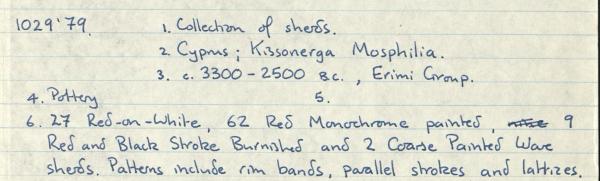 1029'79. 1. Collection of sherds.
2. Cyprus; Kissonerga Mosphilia.
3. c. 3300 - 2500 BC., Erimi Group.
4. Pottery 5.
6. 27 Red-on-White, 62 Red Monochrome painted, 9
Red and Black Stroke Burnished and 2 Coarse Painted Ware
sherds. Patterns include rim bands, parallel strokes and lattices.